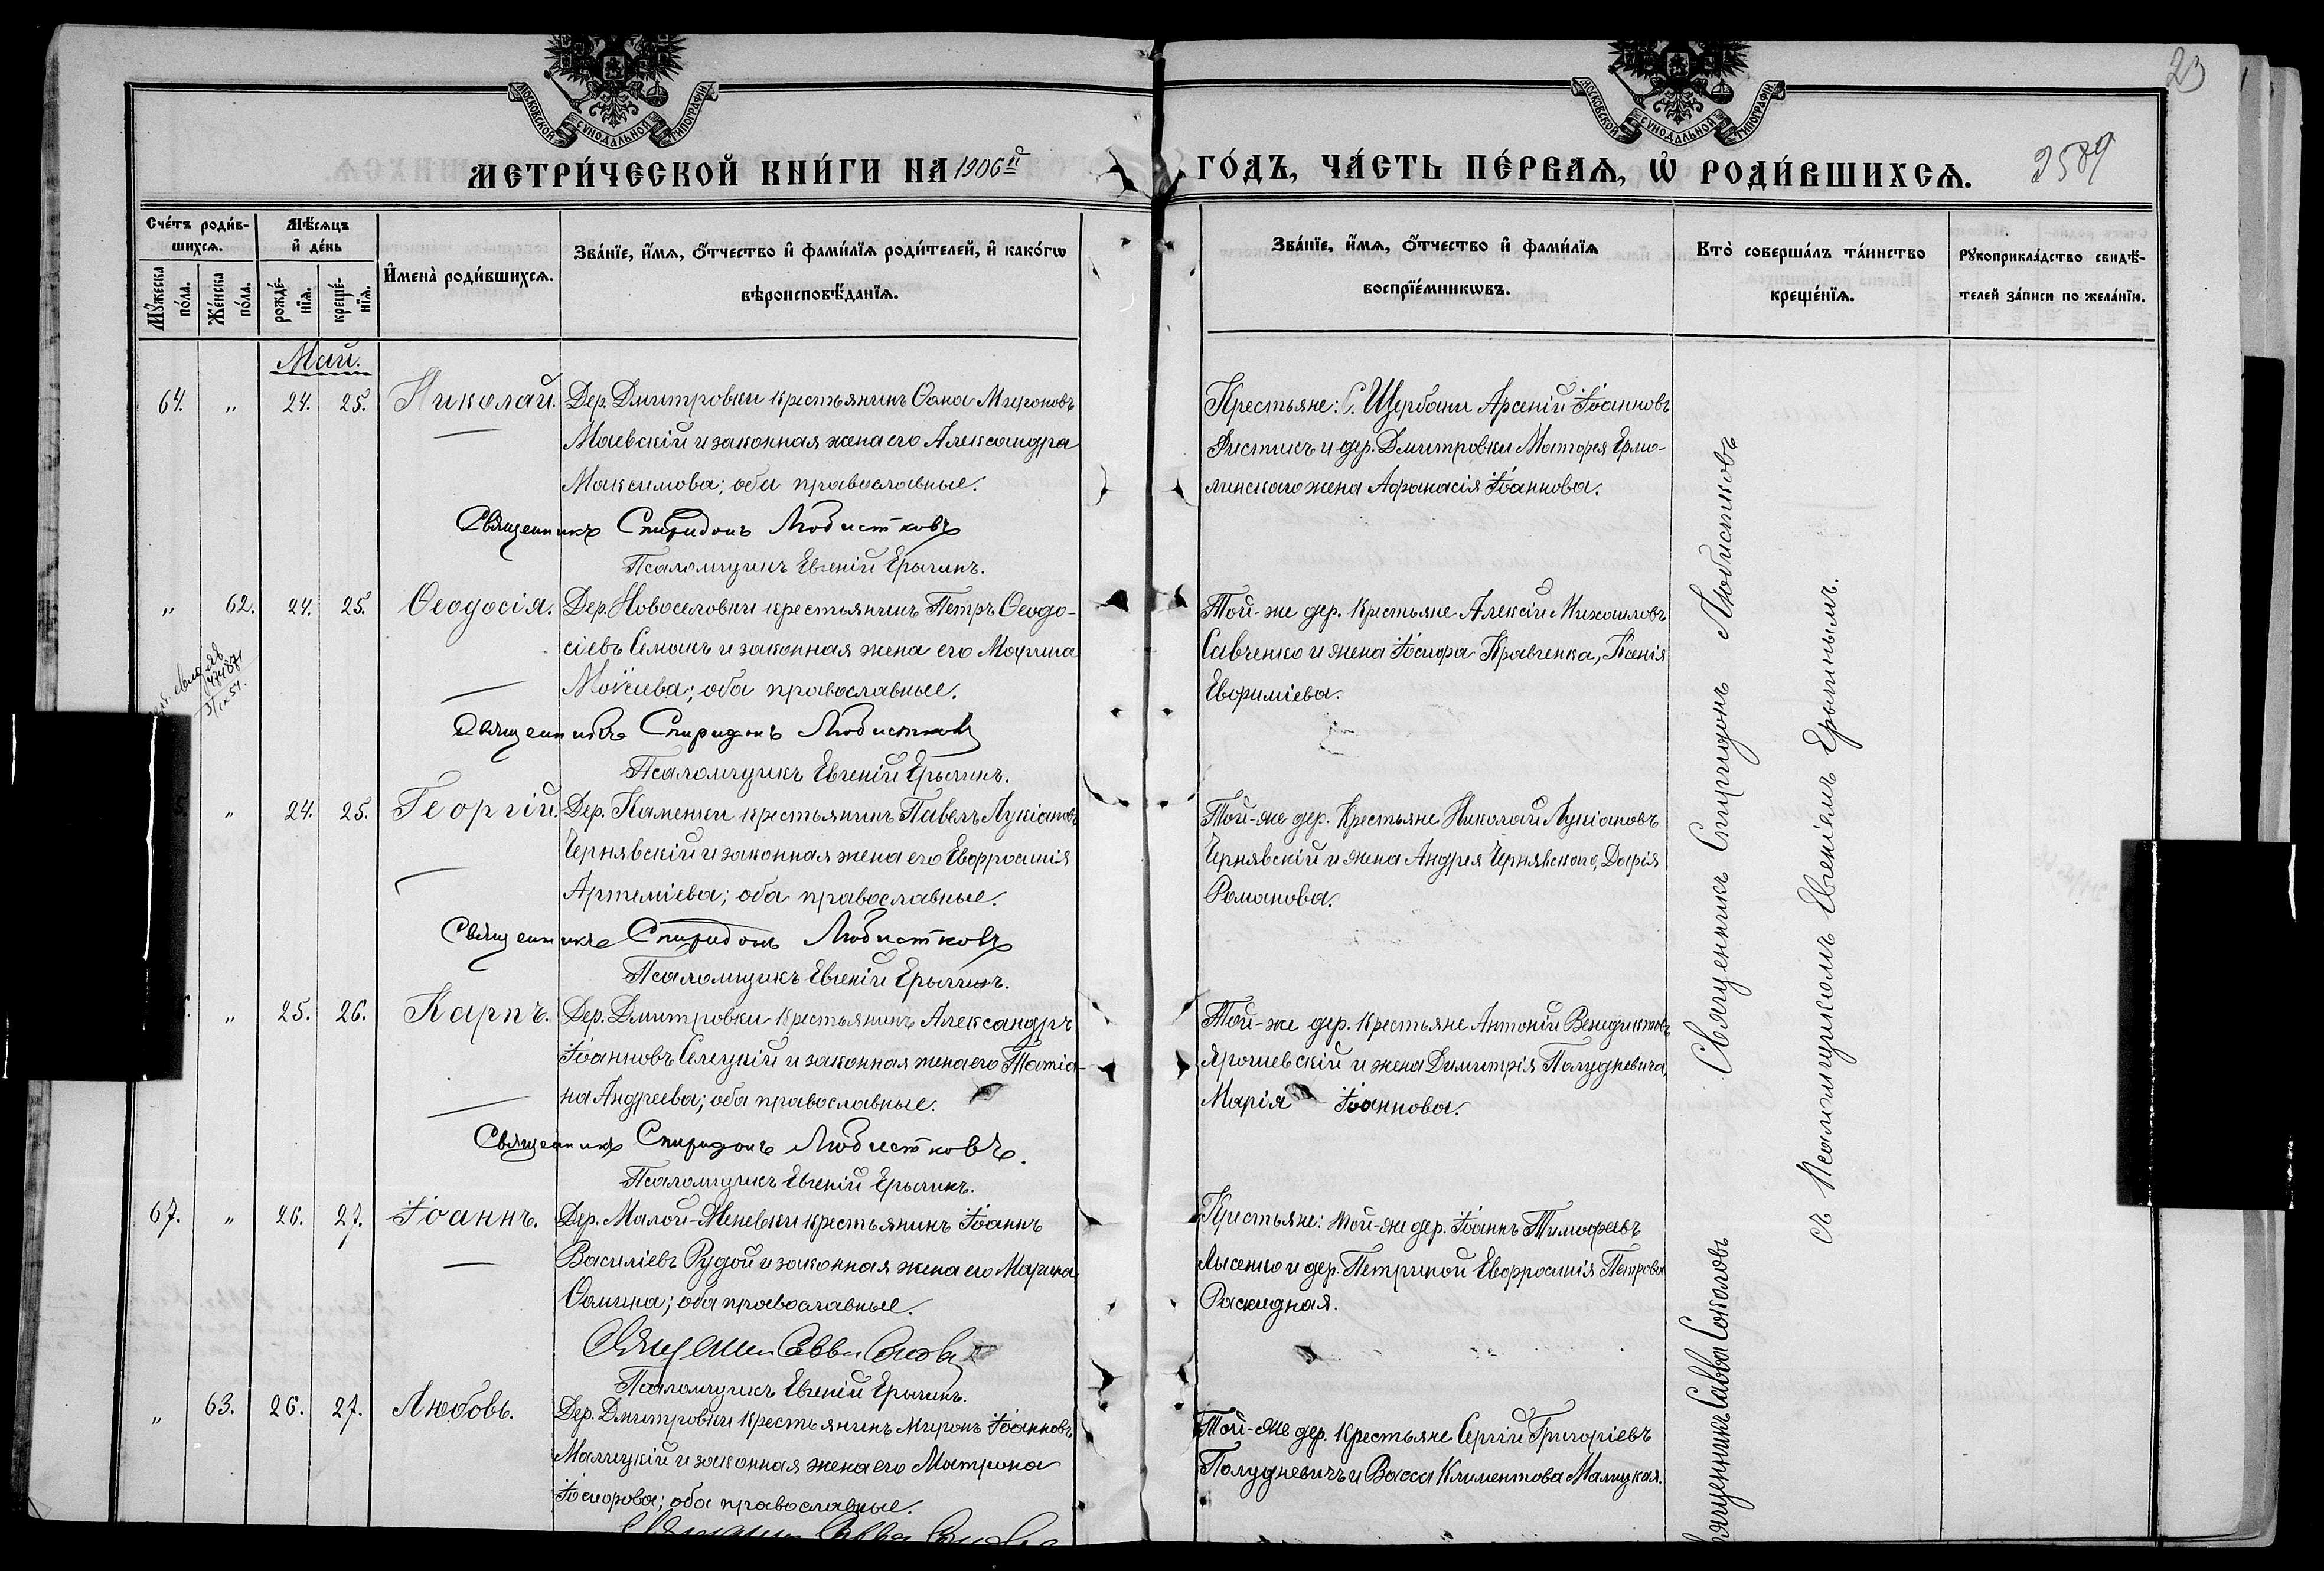 23
МОСКОВСКОЙ СѴНОДАЛЬНОЙ ТИПОГРАФІИ
МОСКОВСКОЙ СѴНОДАЛЬНОЙ ТИПОГРАФІИ
МЕТРИ́ЧЕСКОЙ КНИ́ГИ НА 1906й ГО́ДЪ, ЧА́СТЬ ПЕ́РВАѦ, Ѡ РОДИ́ВШИХСѦ.
2589
Сче́тъ роди́в-
шихсѧ.
Мꙋ́жеска
по́ла.
Же́нска
по́ла.
Мѣ́сѧцъ
и҆ де́нь
рожде́-
нїѧ.
креще́-
нїѧ.
И҆мена̀ роди́вшихсѧ.
Зва́нїе, и҆́мѧ, ѻ҆́тчество и҆ фами́лїѧ роди́телей, и҆ како́гѡ
вѣроисповѣ́данїѧ.
Зва́нїе, и҆́мѧ, ѻ҆́тчество и҆ фами́лїѧ
воспрїе́мникѡвъ.
Кто̀ соверша́лъ та́инство
креще́нїѧ.
Рꙋкоприкла́дство свидѣ́-
телей за́писи по жела́нїю.
Май.
64. „ 24. 25. Николай. Дер. Дмитровки крестьянинъ Ѳома Мироновъ
Маевскій и законная жена его Александра
Максимова; оба православные.
Священникъ Спиридонъ Любистковъ
Псаломщикъ Евгеній Ерыгинъ.
Крестьяне: С. Щербани Арсеній Іоанновъ
и дер. Дмитровки Матѳея Ермо-
линскаго жена Афанасія Іоаннова.
„ 62. 24. 25. Ѳеодосія. Дер. Новоселовки крестьянинъ Петръ Ѳеодо-
сіевъ Семакъ и законная жена его Марина
оба православные.
Священникъ Спиридонъ Любистковъ
Псаломщикъ Евгеній Ерыгинъ.
Той-же дер. крестьяне Алексій Михаиловъ
Савченко и жена Іосифа Кравченка, Ксенія
Евфиміева.
„ 24. 25. Георгій. Дер. Каменки крестьянинъ Павелъ Лукіановъ
Чернявскій и законная жена его Евфросинія
Артеміева; оба православные.
Священникъ Спиридонъ Любистковъ
Псаломщикъ Евгеній Ерыгинъ.
Той-же дер. Крестьяне Николай Лукіановъ
Чернявскій и жена Андрея Чернявскаго, Дарія
Романова.
„ 25. 26. Карпъ. Дер. Дмитровки крестьянинъ Александръ
Іоанновъ Селецкій и законная жена его Татіа-
на Андреева; оба православные.
Священникъ Спиридонъ Любистковъ.
Псаломщикъ Евгеній Ерыгинъ.
Той-же дер. крестьяне Антоній Венедиктовъ
Ярошевскій и жена Димитрія Полудневича,
Марія Іоаннова.
67. „ 26. 27. Іоаннъ. Дер. Малой-Женевки крестьянинъ Іоаннъ
Василіевъ Рудой и законная жена его Марина
Ѳомина; оба православные.
Псаломщикъ Евгеній Ерыгинъ.
Крестьяне: той-же дер. Іоаннъ Тимоѳеевъ
Лысенко и дер. Петриной Евфросинія Петрова
Раскидная.
„ 63. 26. 27. Любовь. Дер. Дмитровки крестьянинъ Миронъ Іоанновъ
Малицкій и законная жена его Матрона
Іосифова; оба православные.
Той-же дер. крестьяне Сергій Григоріевъ
Полудневичъ и Васса Климентова Малицкая.
Священникъ Спиридонъ Любистковъ
съ Псаломщикомъ Евгеніемъ Ерыгинымъ.
Священникъ Савва Соколовъ